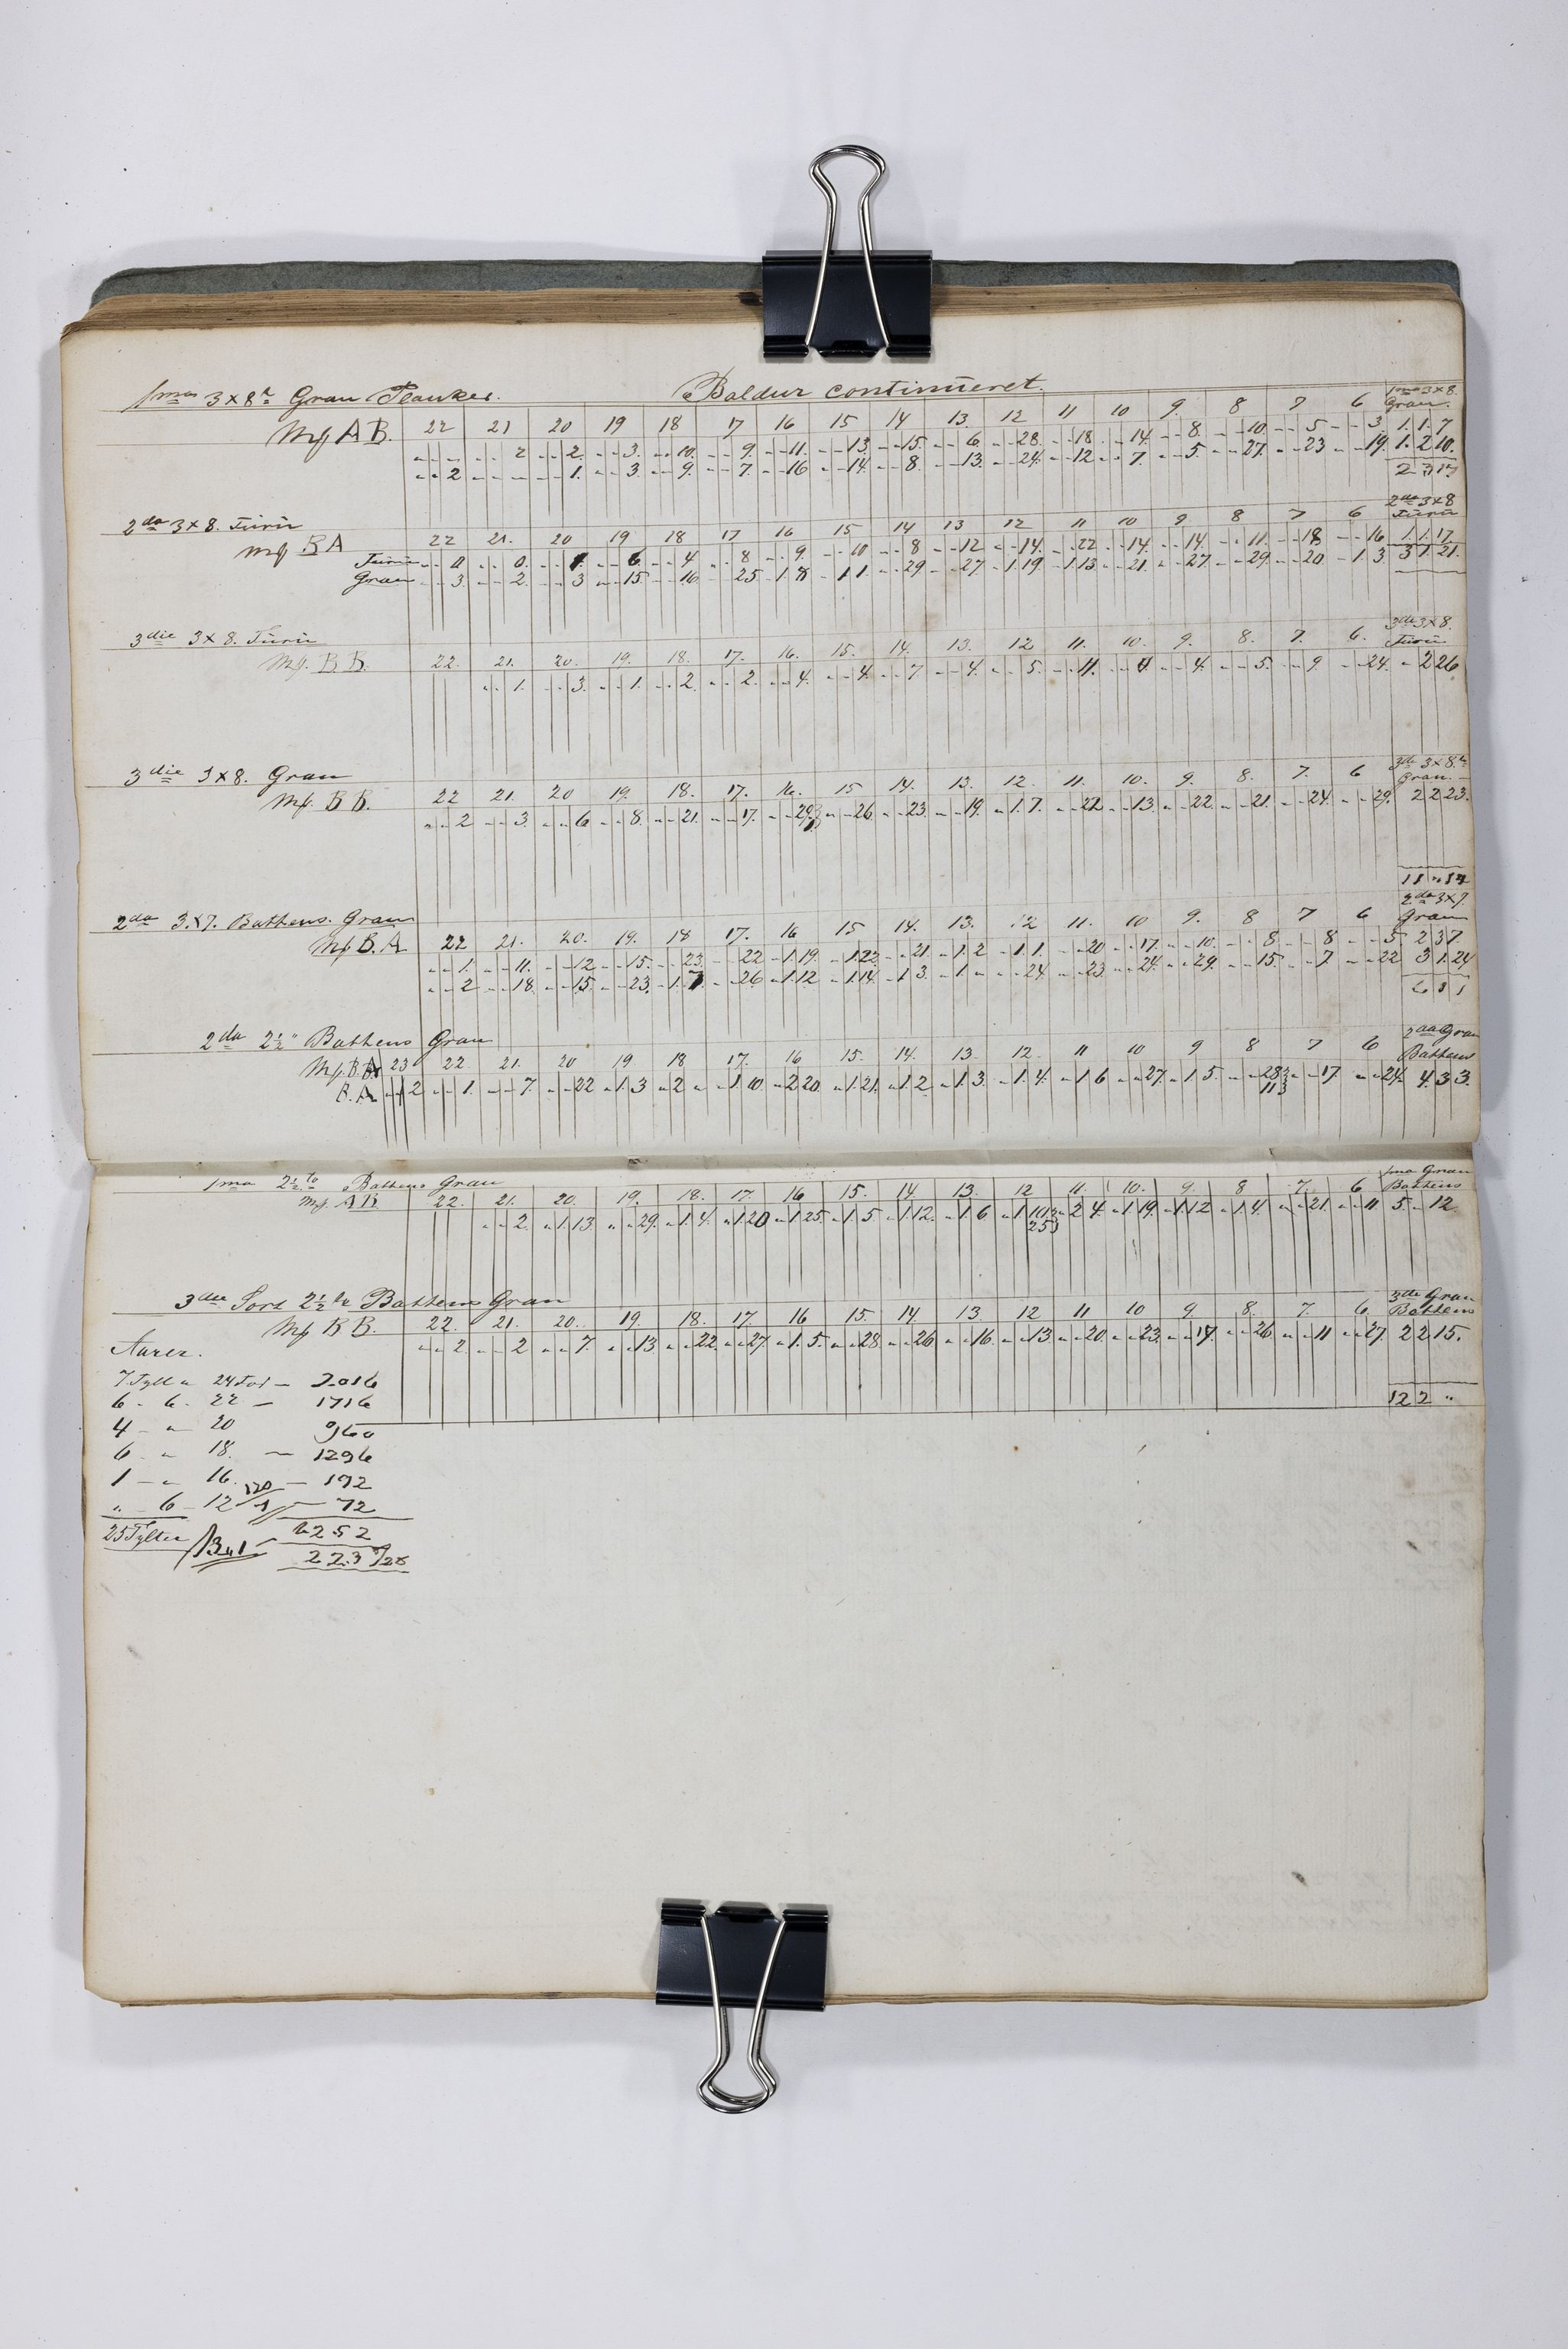 Baldur continueret.
1ma 3x8te Gran Planker. 1ma 3x8. Gran
Mf AB. 22 21 20 19 18 17 16 15 14 13. 12 11 10 9. 8 7 6
" " " " " 2 " " 2. " " 3. " " 10. " " 9. " " 11. " " 13. " " 15. " " 6 " " 28. " " 18. " " 14. " " 8. " " 10. " " 5 " " 3. 1. 1. 7
" " 2 " " " " " 1. " " 3. " " 9. " " 7. " " 16 " " 14. " " 8. " " 13. " " 24. " " 12 " " 7. " " 5. " " 27. " " 23 " " 19. 1. 2 10.
2 3 17
2da 3x8. Furu 2da 3x8 Furu
Mf BA 22 21. 20 19 18 17 16 15 14 13 12 11 10 9 8 7 6
Furu " " 0 " " 0. " " 1 " " 6. " " 4 " " 8 " " 9. " " 10 " " 8 " " 12 " " 14. " " 22 " " 14. " " 14. " " 11. " " 18 " " 16 1 1. 17
Gran " " 3. " " 2. " " 3 " " 15 " " 16 " " 25 " 1. 8 " 1 1 " " 29 " " 27. " 1 19. " 1 13 " " 21. " " 27. " " 29 " " 20 " 1. 3 3 1. 21.
3die 3x8. Furu 3die 3x8. Furu
Mf. BB. 22. 21. 20. 19. 18. 17. 16. 15. 14. 13. 12 11. 10. 9. 8. 7. 6.
" " 1. " " 3. " " 1. " " 2. " " 2. " " 4. " " 4. " " 7 " " 4. " " 5. " " 11. " " 4 " " 4. " " 5. " " 9. " " 24. " 2 26.
3die 3x8. Gran 3die 3x8te Gran.
Mf. BB. 22 21. 20 19. 18. 17. 16. 15 14. 13. 12. 11. 10. 9. 8. 7. 6
" " 2 " " 3. " " 6 " " 8. " " 21. " " 17. " " 29. " " 26. " " 23. " " 19. " 1. 7. " " 22. " " 13. " " 22. " " 21. " " 24. " " 29. 2 2 23.
2da 3x7. Battens. Gran 2da 3x7. Gran
Mf B.A 22 21. 20. 19. 18 17. 16 15 14. 13. 12 11. 10 9. 8 7 6
" " 1. " " 11. " " 12 " " 15. " " 23. " " 22 " 1 19. " 1 22. " " 21 " 1. 2 " 1. 1. " " 20 " " 17. " " 10. " " 8. " " 8 " " 5. 2 3 7.
" " 2 " " 18. " " 15. " " 23. " 1. 7 " " 26 " 1 12 " 1 14. " 1 3. " 1. " " " 24. " " 23. " " 24. " " 29. " " 15. " " 7 " " 22 3 1. 24
6 1 1
2da 2½" Battens Gran 2da Gran Battens
Mf. BA 23 22. 21. 20 19 18 17. 16 15. 14. 13. 12. 11 10 9 8 7 6
B.A " " 2 " " 1. " " 7. " " 22 " 1. 3 " 2 " " 1. 10 " 2 20. " 1 21. " 1 2 " 1. 3. " 1. 4. " 1 6 " " 27. " 1 5. " " 28 " " 17 " " 24 4. 3 3.
11
1ma 2½to Battens Gran 1ma Gran Battens
Mf. AB 22. 21. 20. 19. 18. 17. 16 15. 14. 13. 12 11. 10. 9. 8 7. 6
" " 2. " 1 13. " " 29. " 1. 4. " 1 20 " 1 25. " 1. 5. " 1 12. " 1. 6 " 1 10 " 2 4. " 1 19. " 1 12 " 1 4. " " 21. " " 11 5. " 12
25
3die Sort 2½to Battens Gran 3die Gran Battens
Mf BB. 22. 21. 20. 19. 18. 17. 16 15. 14. 13. 12 11 10 9 8. 7. 6.
" " 2. " " 2 " " 7. " " 13 " " 22. " " 27. " 1. 5. " " 28. " " 26 " " 16. " " 13. " " 20. " " 23. " " 17. " " 26. " " 11 " " 27. 2 2 15.
12 2 "
Aarer.
7 Tylt a 24 Fod — 2016
6 - 6. 22 — 1716
4 - " 20 960
6 " 18. — 1296
1 - " 16. — 192
" 6 - 12 — 72
25 Tylter 6252